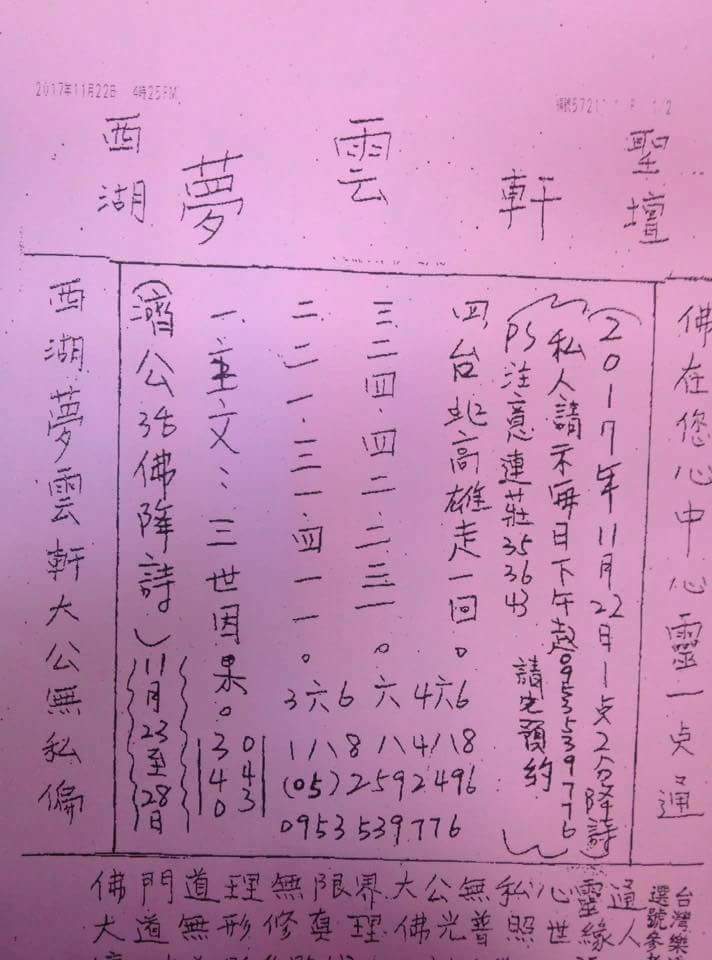 2017年11月22日 4時25PM
西湖夢雲軒聖壇
西湖夢雲軒大公無私偏
(濟公活佛降詩)11月23至28日
一.主文:三世因果。
340
043
二.二一.三一.四一一。
三.二四.四二.二三一。
四.台北高雄走一回。
3六6六4六6
1八8八4八8
(05)2592496
0953539776
PS注意連莊353643 請先預約
私人請示每日下午起0953539776
(2017年11月22日1点2分降詩)
佛在您心中心靈一点通
佛門道理無限界大公無私心靈通
大道無形修真理佛光普照世緣人
台灣樂
選號參考